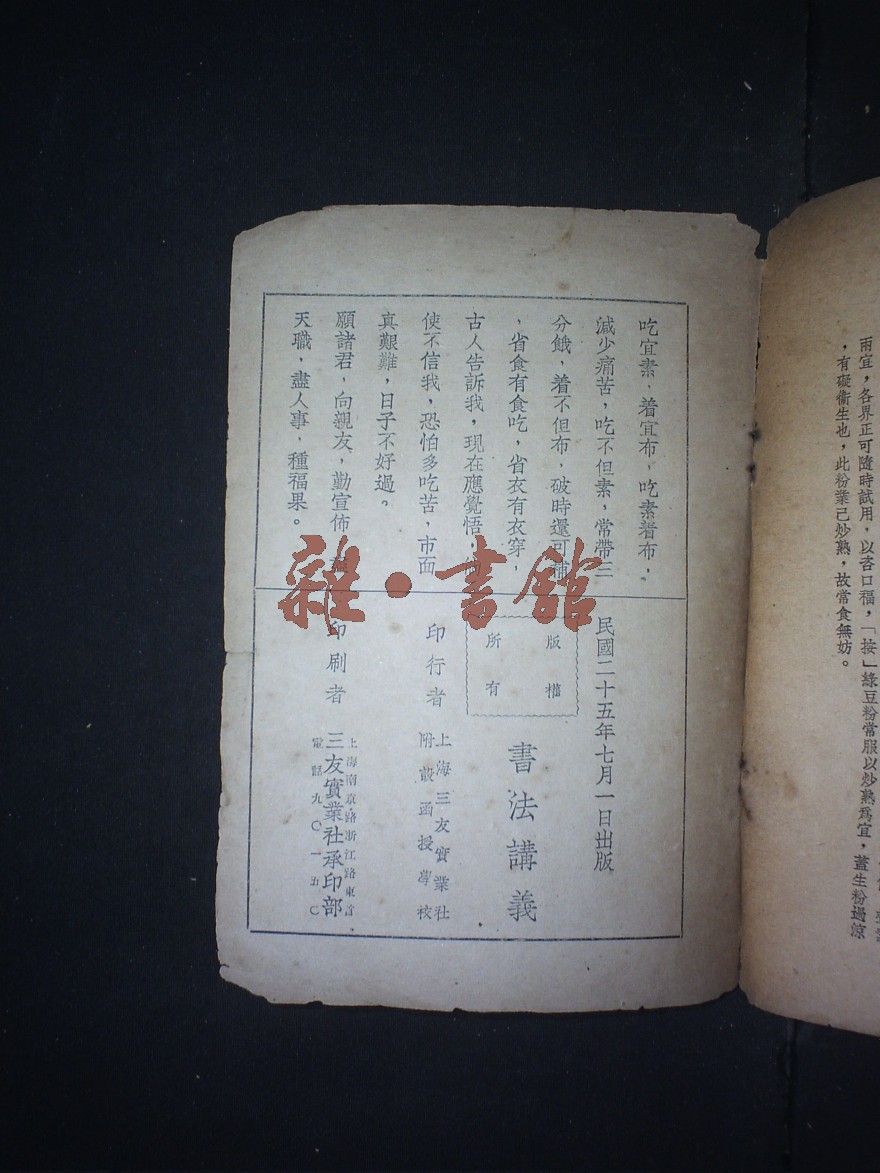 兩宜，各界正可隨時試用，以吝口福，「按」綠豆粉常服以炒熟爲宜，蓋生粉過涼
，有礙衞生也，此粉業已炒熟，故常食無妨。
吃宜素，着宜布，吃素着布，
減少痛苦，吃不但素，常帶三
分餓，着不但布，破時還可補
，省食有食吃，省衣有衣穿，
古人告訴我，現在應覺悟，
使不信我，恐怕多吃苦，市面
真艱難，日子不好過。
願諸君，向親友，勤宣佈，
天職，盡人事，種福果。
民國二十五年七月一日出版
版權
所有
書法講義
印行者
上海三友實業社
附設函授學校
印刷者
上海南京路浙江路東首
三友實業社承印部
電話九〇一五〇
雜·書館